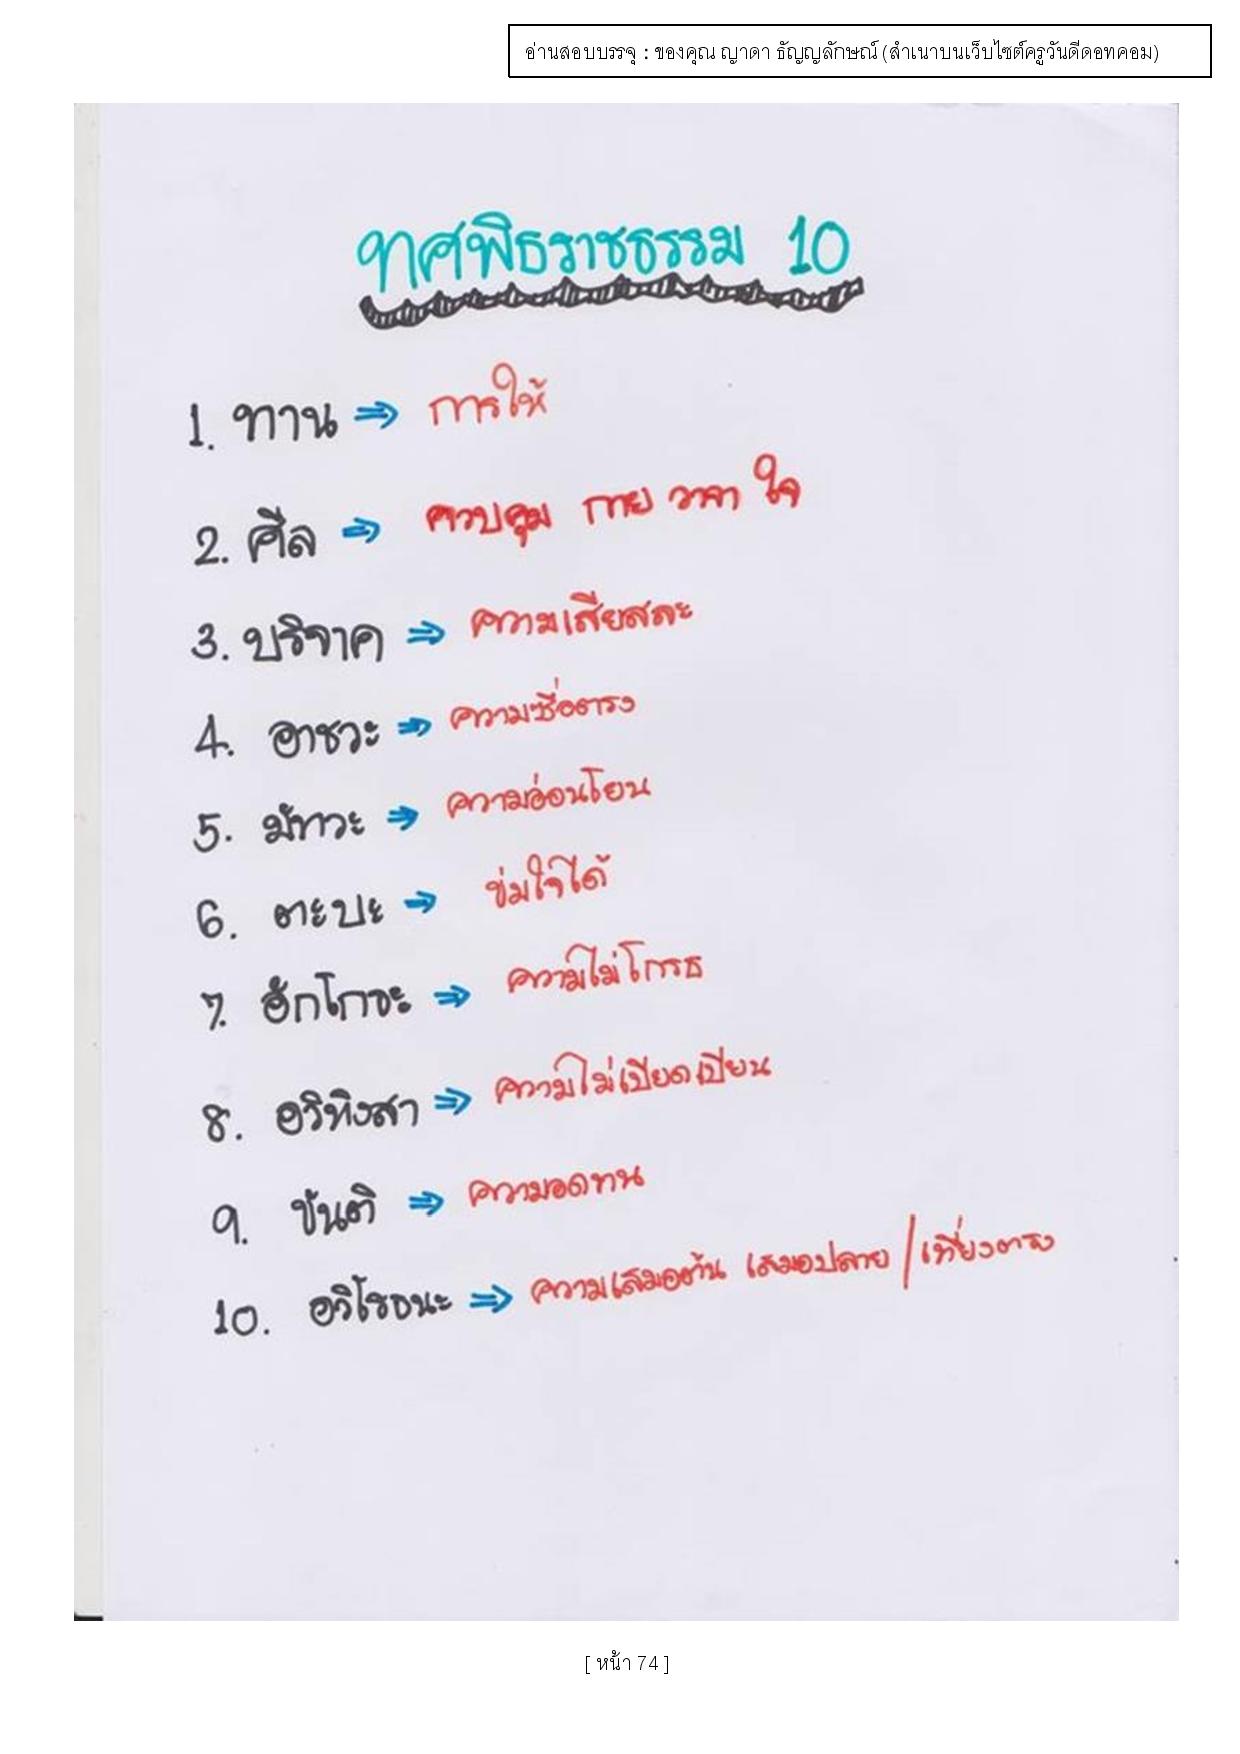 อ่านสอบบรรจุ : ของคุณ ญาดา ธัญญลักษณ์ (สำเนาบนเว็บไซต์ครูวันดีดอทคอม)
ทศพิธราชธรรม 10
1. ทาน ⇒ การให้
2. ศีล ⇒ ควบคุม กาย วาจา ใจ
3. บริจาค ⇒ ความเสียสละ
4. อาชวะ ⇒ ความซื่อตรง
5. มัทวะ ⇒ ความอ่อนโยน
6. ตะบะ ⇒ ข่มใจได้
7. อักโกธะ ⇒ ความไม่โกรธ
8. อวิหิงสา ⇒ ความไม่เบียดเบียน
9. ขันติ ⇒ ความอดทน
10. อวิโรธนะ ⇒ ความเสมอต้น เสมอปลาย / เที่ยงตรง
[ หน้า 74 ]